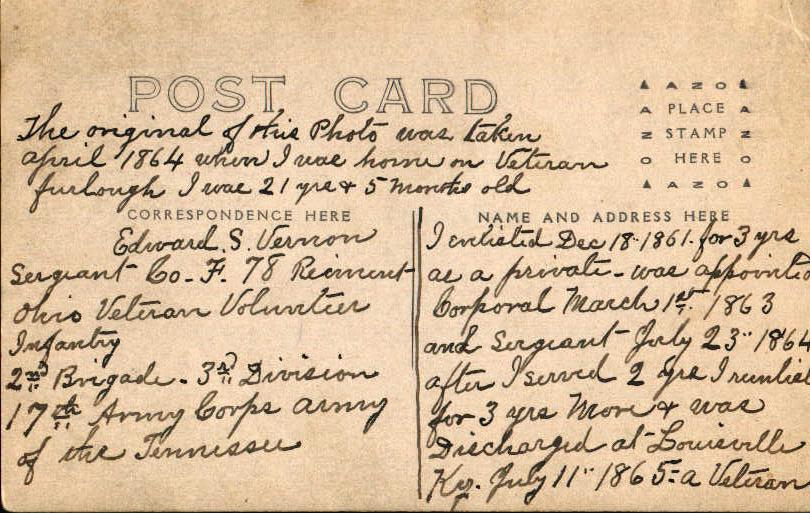 POST CARD
The original of this Photo was taken
april 1864 when I was home on Veteran
furlough I was 21 yrs & 5 months old
AZO
PLACE
STAMP
HERE
AZO
CORRESPONDENCE HERE
Edward. S. Vernon
Sergeant Co. F. 78 Regiment
Ohio Veteran Volunteer
Infantry
2nd Brigade. 3rd Division
17th Army Corps army
of the Tennessee
NAME AND ADDRESS HERE
I enlisted Dec 18. 1861. for 3 yrs
as a private - was appointed
Corporal March 1st. 1863
and Sergeant July 23" 1864
after I served 2 yrs I reenlist
for 3 yrs More & was
Discharged at Louisville
Ky. July 11" 1865 - a Veteran